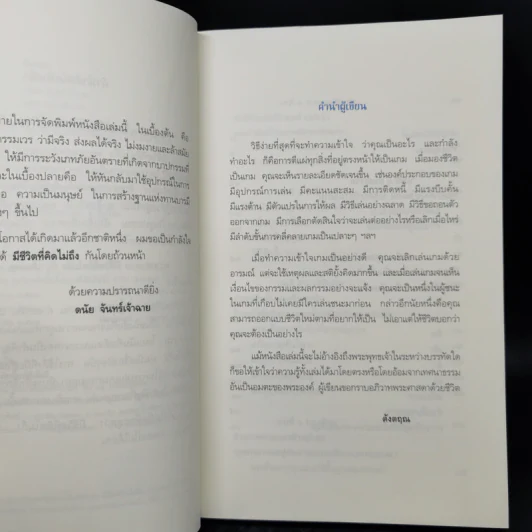 ายในการจัดพิมพ์หนังสือเล่มนี้ ในเบื้องต้น คือ
รรมเวร ว่ามีจริง ส่งผลได้จริง ไม่งมงายและล้าสมัย
ให้มีการระวังเภทภัยอันตรายที่เกิดจากบาปกรรมดี
ะในเบื้องปลายคือ ให้หันกลับมาใช้อุปกรณ์ในการ
อ ความเป็นมนุษย์ ในการสร้างฐานแห่งทานบารมี
งๆ ขึ้นไป
โอกาสได้เกิดมาแล้วอีกชาติหนึ่ง ผมขอเป็นกำลังใจ
ด้ มีชีวิตที่คิดไม่ถึง กันโดยถ้วนหน้า
ด้วยความปรารถนาดียิ่ง
ดนัย จันทร์เจ้าฉาย
คำนำผู้เขียน
วิธีง่ายที่สุดที่จะทำความเข้าใจ ว่าคุณเป็นอะไร และกำลัง
ทำอะไร ก็คือการตีแผ่ทุกสิ่งที่อยู่ตรงหน้าให้เป็นเกม เมื่อมองชีวิต
เป็นเกม คุณจะเห็นรายละเอียดชัดเจนขึ้น เช่นองค์ประกอบของเกม
มีอุปกรณ์การเล่น มีคะแนนสะสม มีการติดหนี้ มีแรงบีบคั้น
มีแรงต้าน มีตัวแปรในการให้ผล มีวิธีเล่นอย่างฉลาด มีวิธีขอถอนตัว
ออกจากเกม มีการเลือกตัดสินใจว่าจะเล่นต่ออย่างไรหรือเลิกเมื่อไหร่
มีลำดับขั้นการคลี่คลายเกมเป็นเปลาะๆ ฯลฯ
เมื่อทำความเข้าใจเกมเป็นอย่างดี คุณจะเลิกเล่นเกมด้วย
อารมณ์ แต่จะใช้เหตุผลและสติยั้งคิดมากขึ้น และเมื่อเล่นเกมจนเห็น
เงื่อนไขของกรรมและผลกรรมอย่างจะแจ้ง คุณจะเป็นหนึ่งในผู้ชนะ
ในเกมที่เกือบไม่เคยมีใครเล่นชนะมาก่อน กล่าวอีกนัยหนึ่งคือคุณ
สามารถออกแบบชีวิตใหม่ตามที่อยากให้เป็น ไม่เอาแต่ให้ชีวิตบอกว่า
คุณจะต้องเป็นอย่างไร
แม้หนังสือเล่มนี้จะไม่อ้างอิงถึงพระพุทธเจ้าในระหว่างบรรทัดใด
ก็ขอให้เข้าใจว่าความรู้ทั้งเล่มได้มาโดยตรงหรือโดยอ้อมจากเทศนาธรรม
อันเป็นอมตะของพระองค์ ผู้เขียนขอกราบอภิวาทพระศาสดาด้วยชีวิต
ดังตฤณ